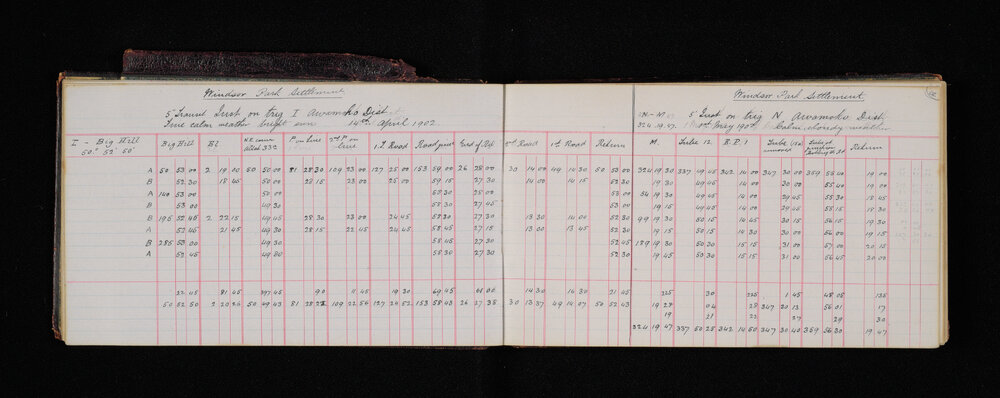 Windsor Park Settlement
5" Transit Inst on trig I Awamoko Dist
Fine calm weather bright sun 14th April 1902
I - Big Hill
50° 52' 50"
Big Hill BI N.E. corner Allot 33C P on line 2nd P on line 1st Road Road junc Trd of Rd 2nd Road 1st Road Return
A 50 53 00 2 19 00 50 50 00 81 28 30 109 23 00 127 25 00 153 59 00 26 28 00 30 14 00 49 14 30 50 53 00
B 52 30 18 45 50 00 28 15 23 00 25 00 59 15 27 30 14 00 14 15 52 30
A 140 53 00 50 00 58 30 28 00 53 00
B 53 00 49 30 58 30 27 45 53 00
B 195 52 45 2 22 15 49 45 28 30 23 00 24 45 58 30 27 30 13 30 14 00 52 30
A 52 45 21 45 49 30 28 15 22 45 24 45 58 45 27 15 13 00 13 45 52 30
B 285 53 00 49 30 58 45 27 30 52 45
A 52 45 49 30 58 30 27 30 52 30
22 45 81 45 397 45 90 11 45 19 30 69 45 61 00 14 30 16 30 21 45
50 52 50 2 20 26 50 49 43 81 28 22 109 22 56 127 24 52 153 58 43 26 27 38 30 13 37 49 14 07 50 52 43
Windsor Park Settlement
5" Inst on trig N Awamoko Dist
N - M
324. 19. 47. 2nd May 1902 Calm cloudy weather
M. Tube 12. B.P. 1 Return
324 19 30 337 49 45 342 14 00 347 30 00 359 55 45 19 00
19 30 49 45 14 00 30 00 55 40 19 00
54 19 30 49 45 14 00 29 45 55 30 18 45
19 15 49 45 14 00 29 45 55 15 18 30
99 19 30 50 15 14 45 30 15 56 15 19 30
19 15 50 15 14 30 30 00 56 00 19 15
189 19 30 50 30 15 15 31 00 57 00 20 15
19 45 50 30 15 15 31 00 56 45 20 00
225 30 225 1 45 48 05 135
19 28 04 28 347 20 13 56 01 17
19 21 22 27 29 30
324 19 47 337 50 25 342 14 50 347 30 40 359 56 30 19 47